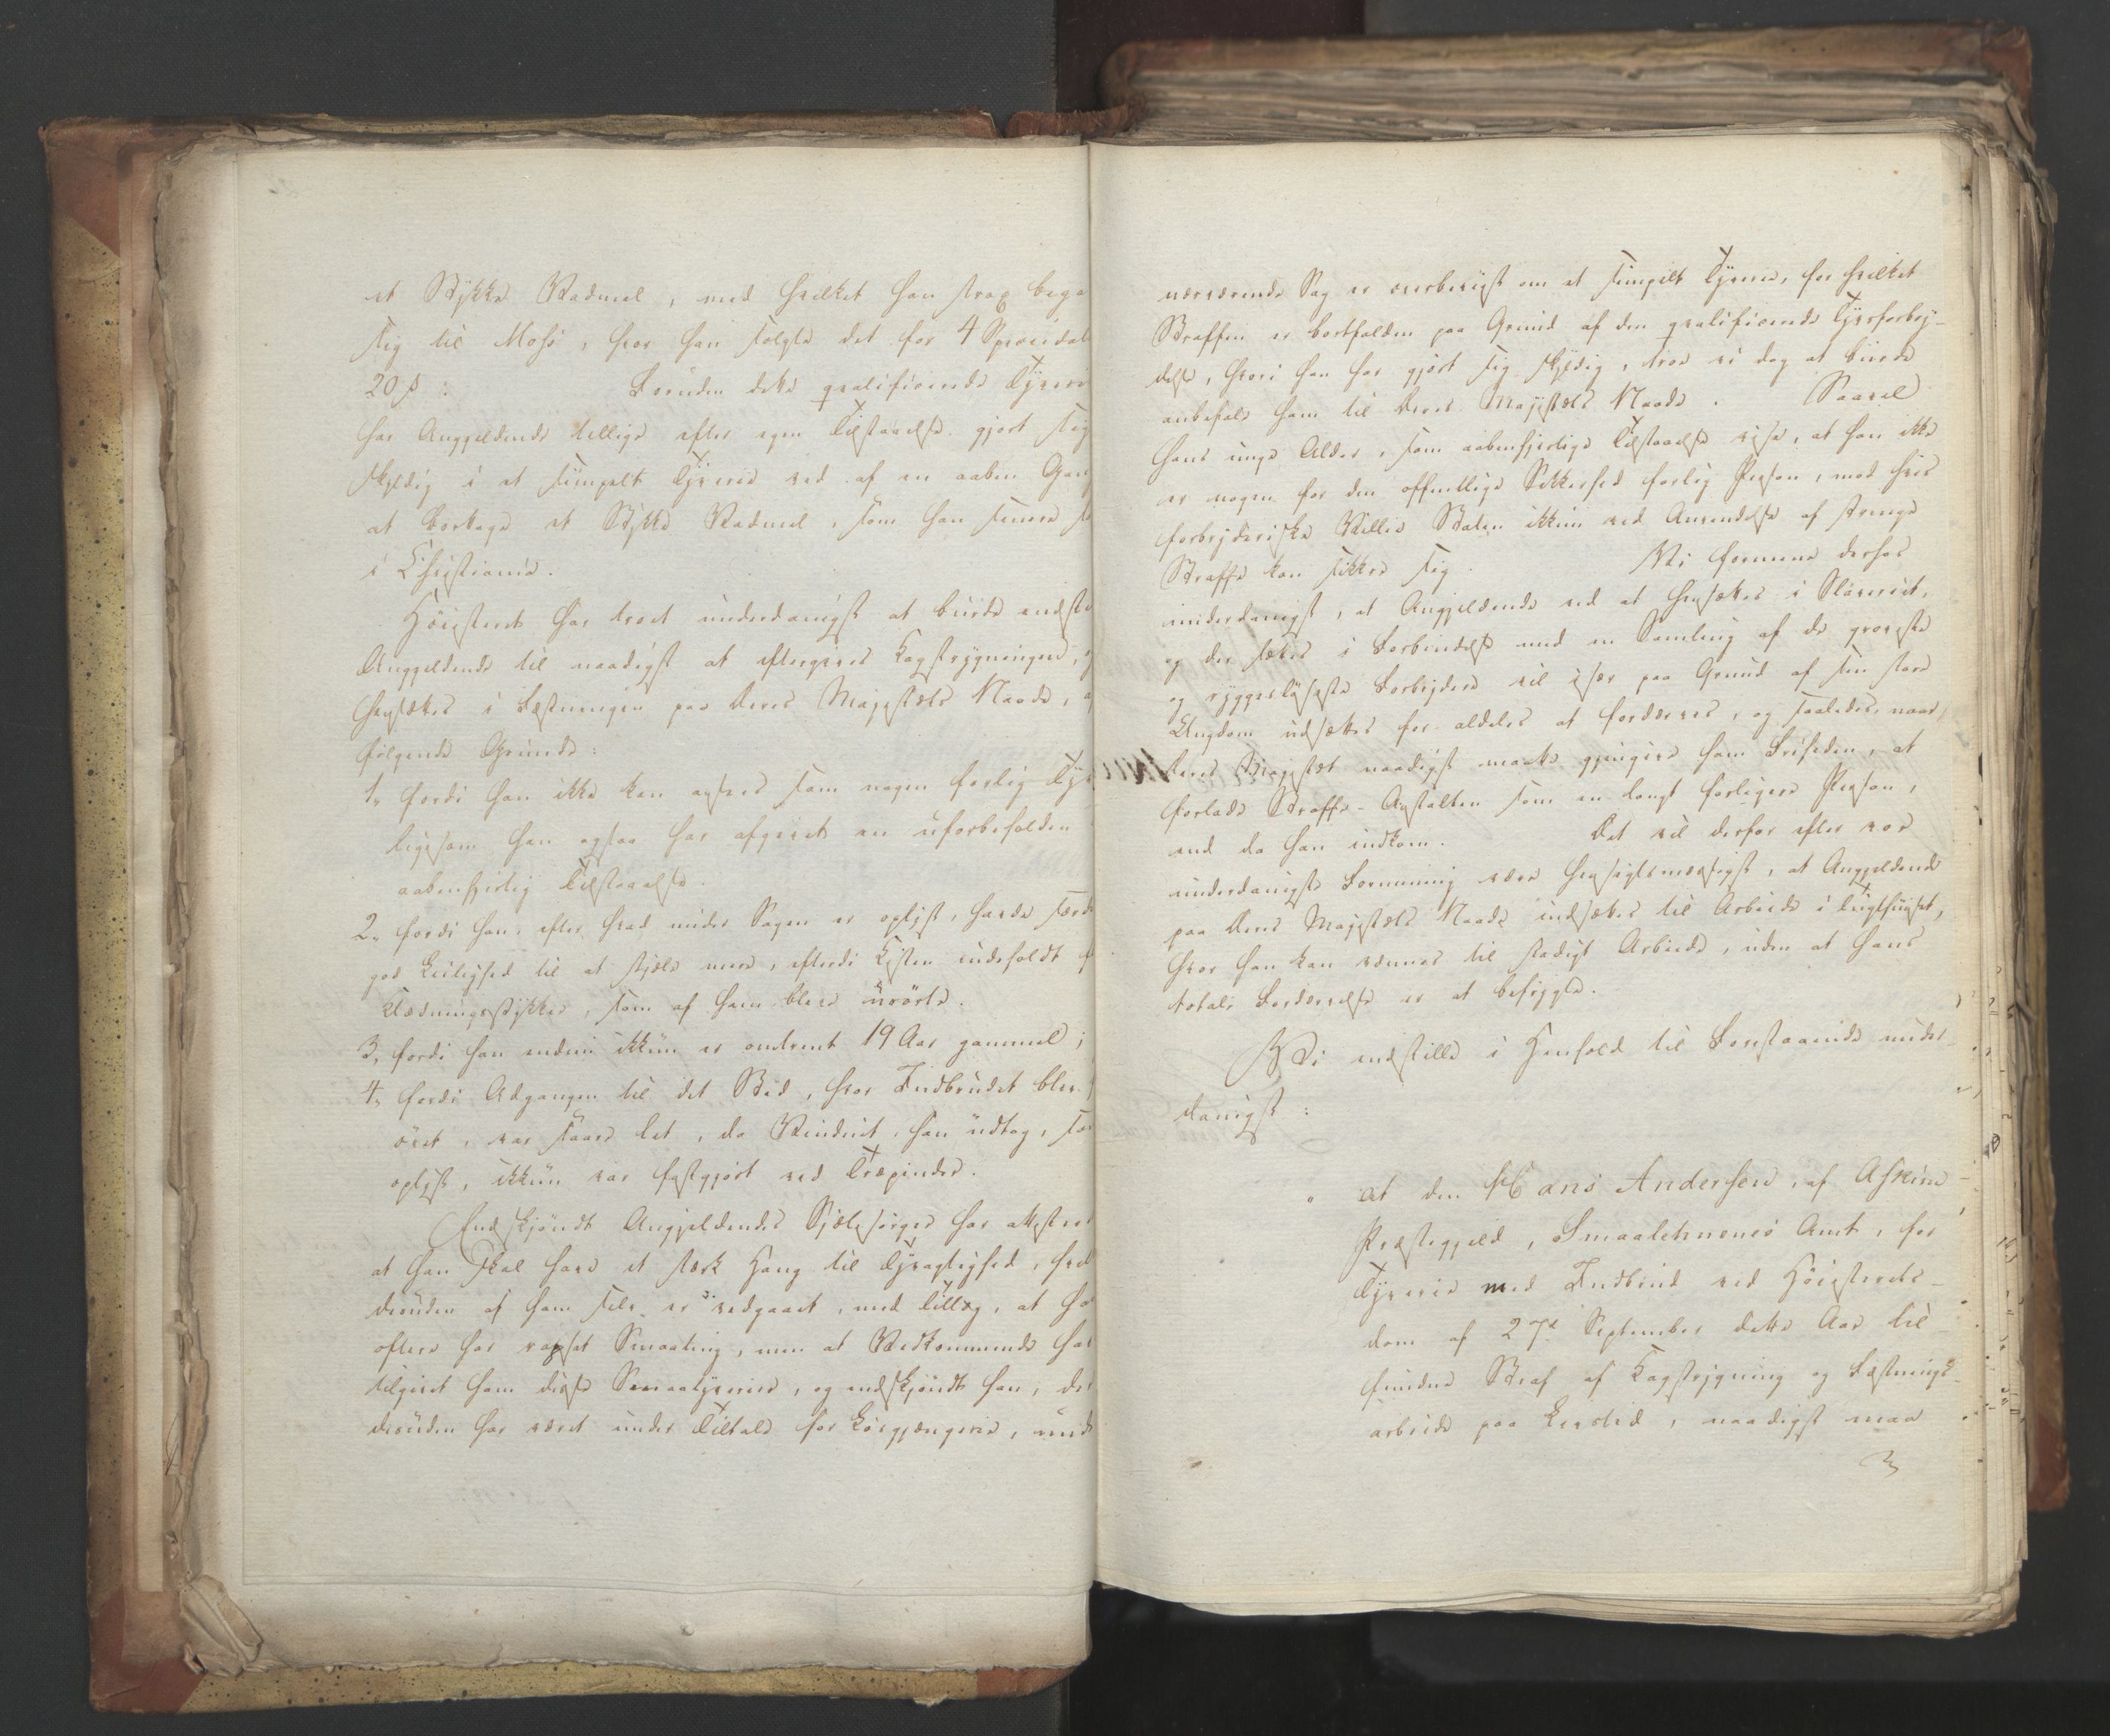 et Stykke Vadmel, med hvilket han strax bega
sig til Moss, hvor han solgte det for 4 Speciedal
20 s: Foruden dette qvalificerede Tyveri
har Angjeldende tillige efter egen Tilstaaelse gjort sig
skyldig i et simpelt Tyverie ved af en aaben Gang
at borttage et Stykke Vadmel, som han senere s
i Christiania.
Höiesteret har troet underdanigst at burde indstil
Angjeldende til naadigst at eftergives Kagstrygningen, og
hensættes i Fæstningen paa Deres Majestæts Naade, a
fölgende Grunde:
1, fordi han ikke kan ansees som nogen farlig Ty
ligesom han ogsaa har afgivet en uforbeholden
aabenhjertig Tilstaaelse.
2, fordi han, efter hvad under Sagen er oplyst, havde særd
god Leilighed til at stjæle mere, efterdi Kisten indeholdt f
Klædningsstykker, som af ham bleve urörte.
3, fordi han endnu ikkun er omtrent 19 Aar gammel;
4, fordi Adgangen til det Sted, hvor Indbrudet blev
övet, var saare let, da Vinduet, han udtog, som
oplyst, ikkun var fastgjort ved Træpinder.
Endskjöndt Angjeldendes Sjælesörger har attesteret
at han skal have et stærk Hang til Tyvagtighed, hvil
desuden af ham selv er vedgaaet, med Tillæg, at han
oftere har rapset Smaating, men at Vedkommende har
tilgivet ham disse Smaatyverier, og endskjöndt han, des
desuden har været under Tiltale for Lösgjængerie, und
nærværende Sag er overbeviist om et simpelt Tyverie, for hvilket
Straffen er bortfalden paa Grund af den qvalificerede Tyvsforbry-
delse, hvori han har gjort sig skyldig, troe vi dog at burde
anbefale ham til Deres Majestæts Naade. Saavel
hans unge Alder, som aabenhjertige Tilstaaelse vise, at han ikke
er nogen for den offentlige Sikkerhed farlig Person, mod hvis
forbryderiske Villie Staten ikkun ved Anvendelse af strenge
Straffe kan sikkre sig. Vi formene derhos
underdanigst, at Angjeldende ved at hensættes i Slaveriet,
og der sættes i Forbindelse med en Samling af de groveste
og ryggeslöseste Forbrydere vil især paa Grund af sin store
Ungdom udsættes for aldeles at fordærves, og saaledes, naar
Deres Majestæt naadigst maatte gjengive ham Friheden, at
forlade Straffe-Anstalten som en langt farligere Person,
end da han indkom. Det vil derfor efter vor
underdanigste Formening være hensigtsmæssigst, at Angjeldende
paa Deres Majestæts Naade indsættes til Arbeide i Tugthuset,
hvor han kan vænnes til stadigt Arbeide, uden at hans
totale Fordærvelse er at befrygte.
Vi indstille i Henhold til Forestaaende under-
danigst:
" at den Hans Andersen, af Askim
Præstegjeld, Smaalehnenes Amt, for
Tyverie med Indbrud ved Höiesterets-
dom af 27de September dette Aar til-
fundne Straf af Kagstrygning og Fæstnings-
arbeide paa Livstid, naadigst maa